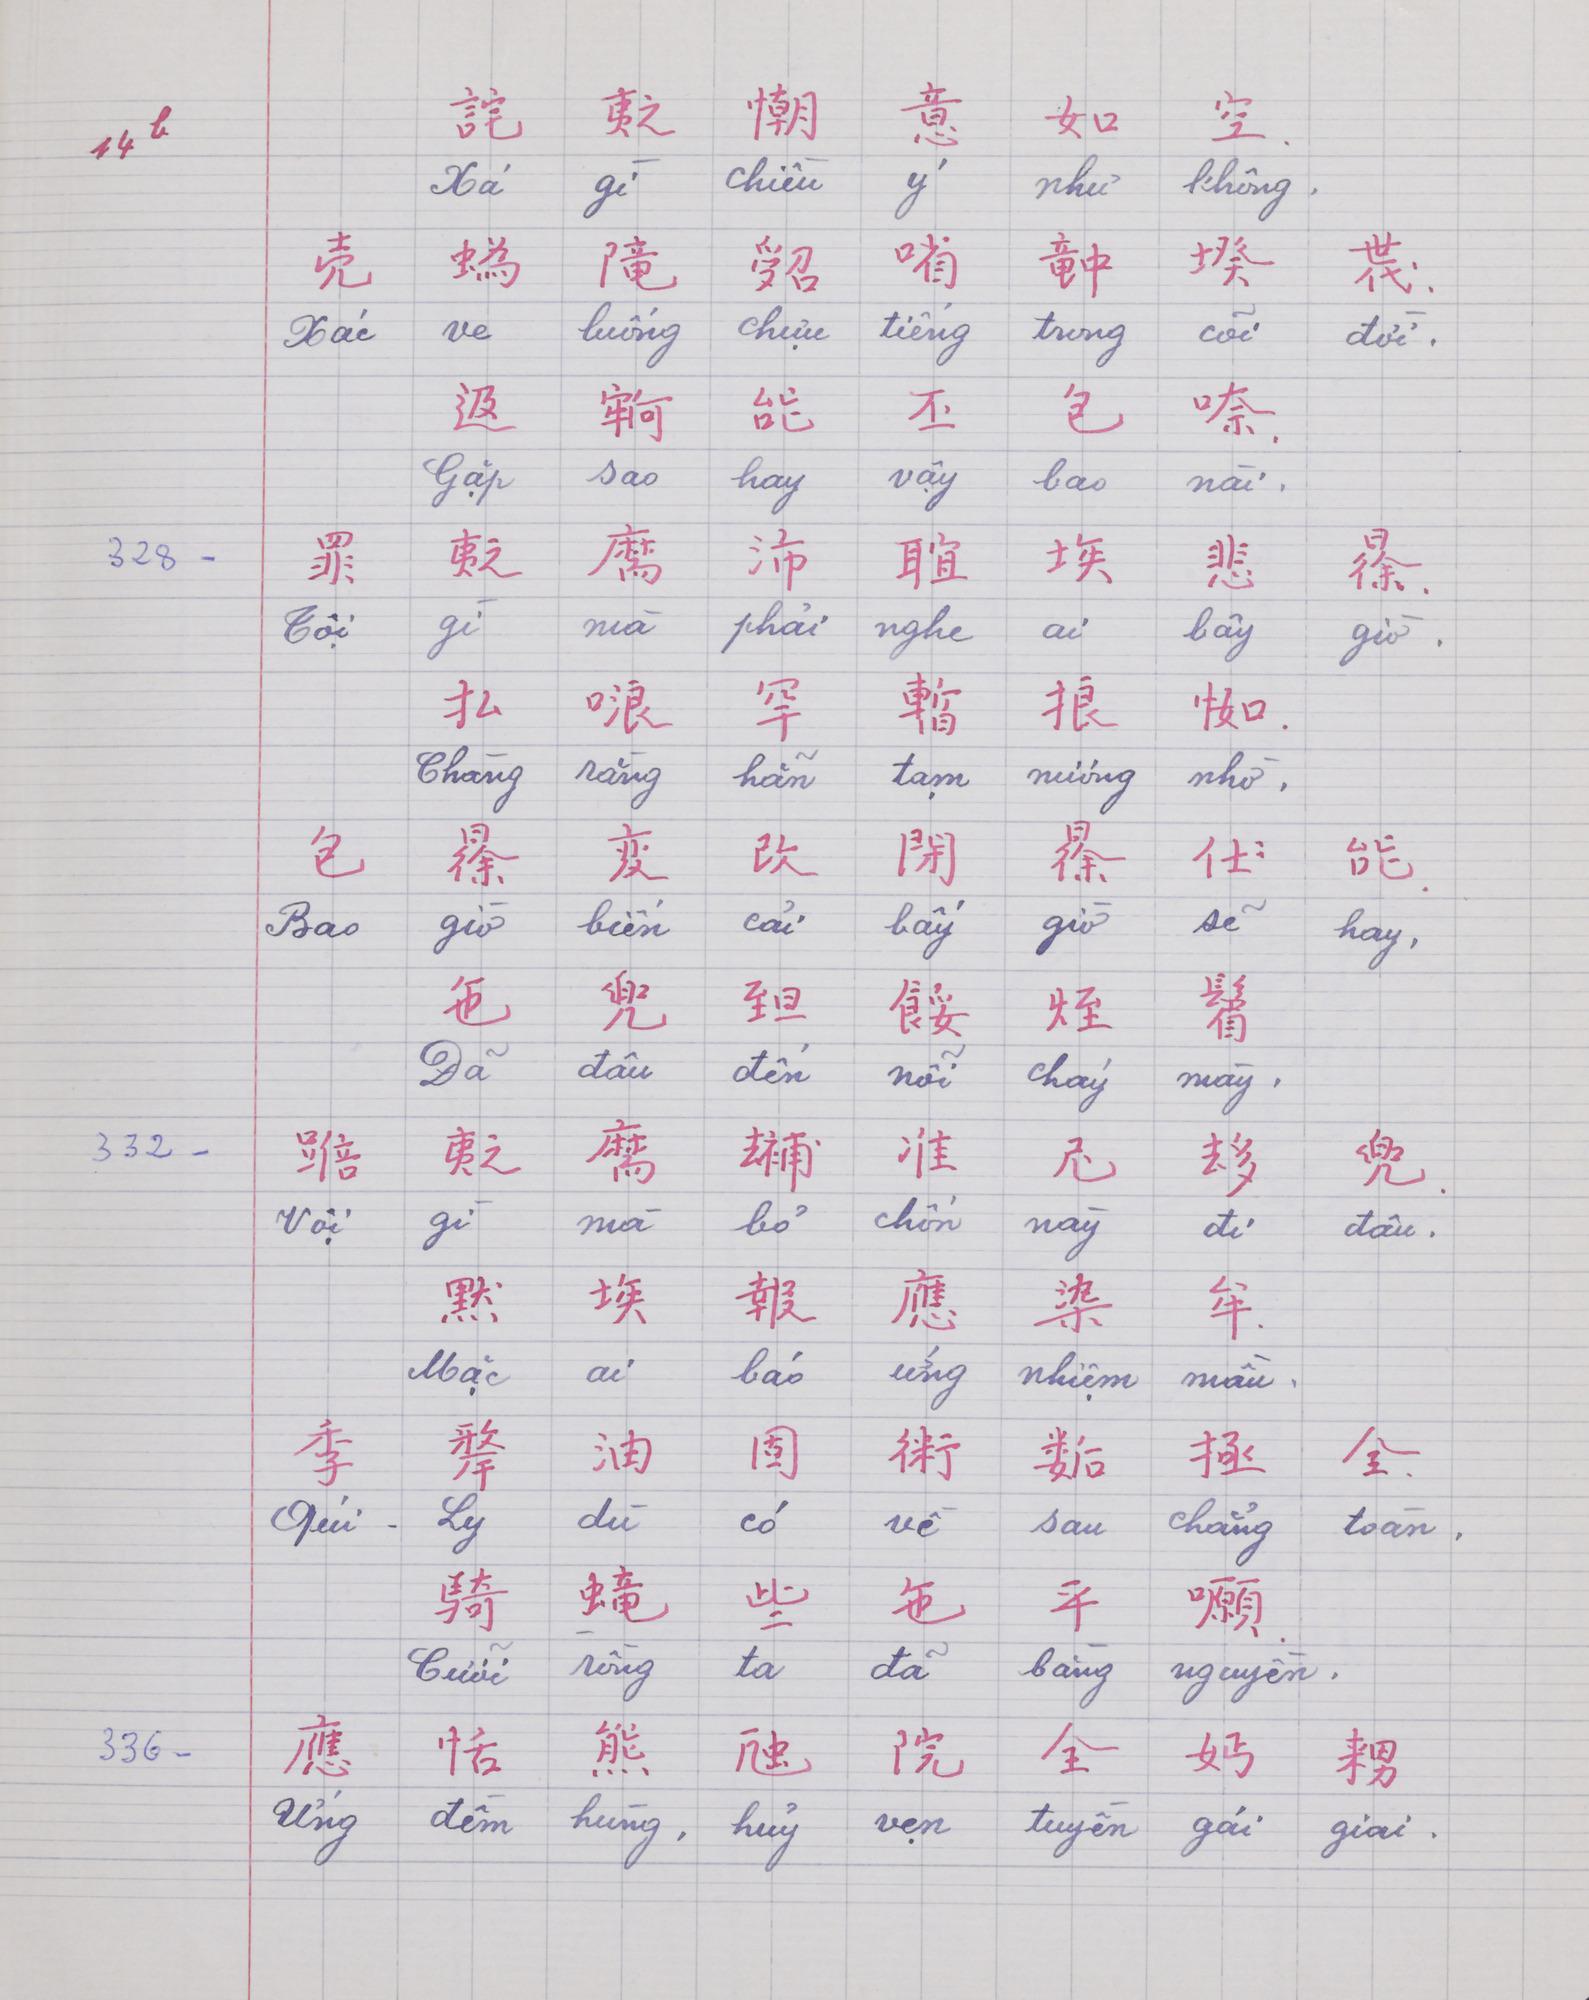 14b
詫 𡗶之 𢠩 意 如 空.
Xá gì chiều ý như không.
壳 𧍋 隴 𠹾 哨 𥪝 𡎝 𠁀.
Xác ve luống chịu tiếng trong cõi đời.
𨕭 𡨧 能 丕 包 㖠.
Gặp sao hay vậy bao nài.
328 - 罪 之 麻 沛 𦖑 埃 悲 𣇞.
Tội gì mà phải nghe ai bây giờ.
払 哴 罕 暫 𢭗 𢚁.
Chàng rằng hẵn tạm nương nhờ.
包 𣇞 変 改 閉 𣇞 仕 能.
Bao giờ biến cải bấy giờ sẽ hay,
㐌 兜 𦤾 餒 𤈜 𪵟
Đã đâu đến nỗi cháy mày.
332 - 𨁟 之 麻 𠬃 准 尼 𠫾 兜.
Vội gì mà bỏ chốn này đi đâu.
默 埃 報 應 染 牟.
Mặc ai báo ứng nhiệm mầu.
季 犛 油 固 術 𡢐 拯 全.
Quí - Ly dù có về sau chẳng toàn.
騎 𧏵 些 㐌 平 願.
Cưỡi rồng ta đã bằng nguyền.
336 - 應 恬 熊 虺 院 全 𡛔 𤳇
Ứng đềm hùng, huỷ vẹn tuyền gái giai.